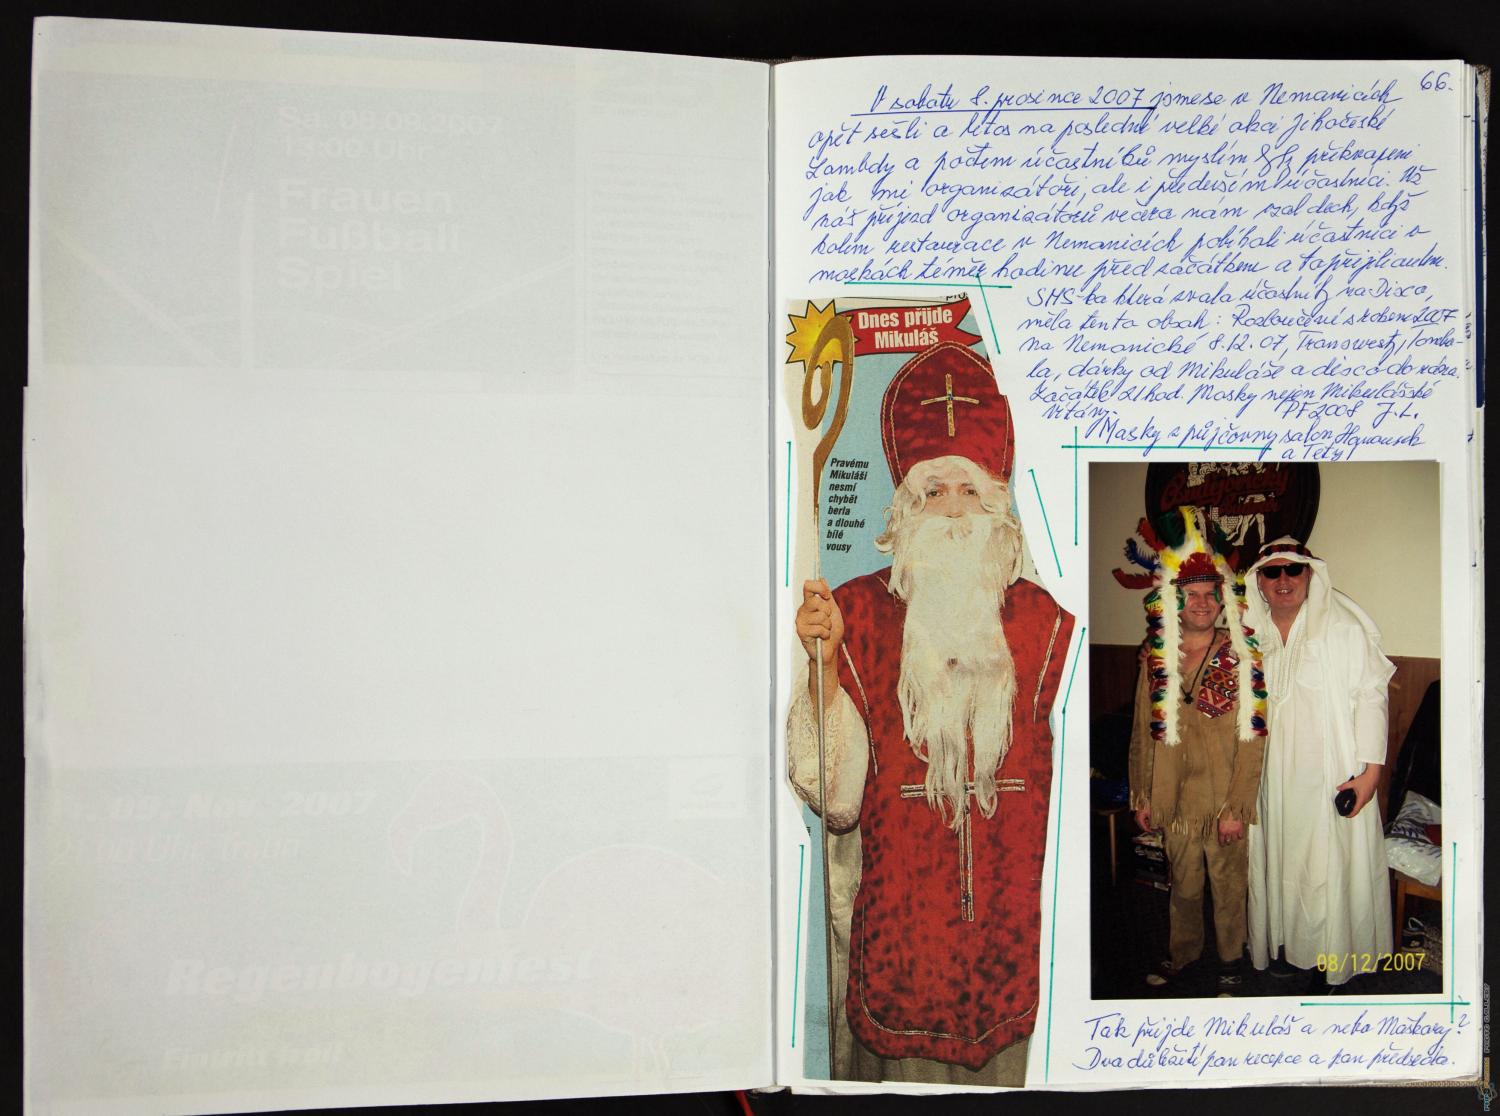 Sa. 08.09.2007
15:00 Uhr
Frauen
Fußball
Spiel
2007
Regenbogenfest
66.
V sobotu 8. prosince 2007 jsme se v Nemanicích
opět sešli a letos na poslední velké akci Jihočeské
Lambdy a počtem účastníků myslím byli překvapeni
jak mi organizátoři, ale i především účastníci. Už
náš příjezd organizátorů večera nám vzal dech, když
kolem restaurace v Nemanicích pobíhali účastníci v
maskách téměř hodinu před začátkem a to přijeli autem.
SMS-ka která zvala účastníky na Disco,
měla tento obsah: Rozloučení s rokem 2007
na Nemanické 8.12.07, Transvesty, Tombo-
la, dárky od Mikuláše a disco do rána.
Začátek 21 hod. Masky nejen Mikulášské
vítány. PF 2008 J.L.
Masky z půjčovny salon Hanousek
a Tety
Dnes přijde
Mikuláš
Pravému
Mikuláši
nesmí
chybět
berla
a dlouhé
bílé
vousy
08/12/2007
Tak přijde Mikuláš a nebo Maškary?
Dva důležití pan recepce a pan předseda.